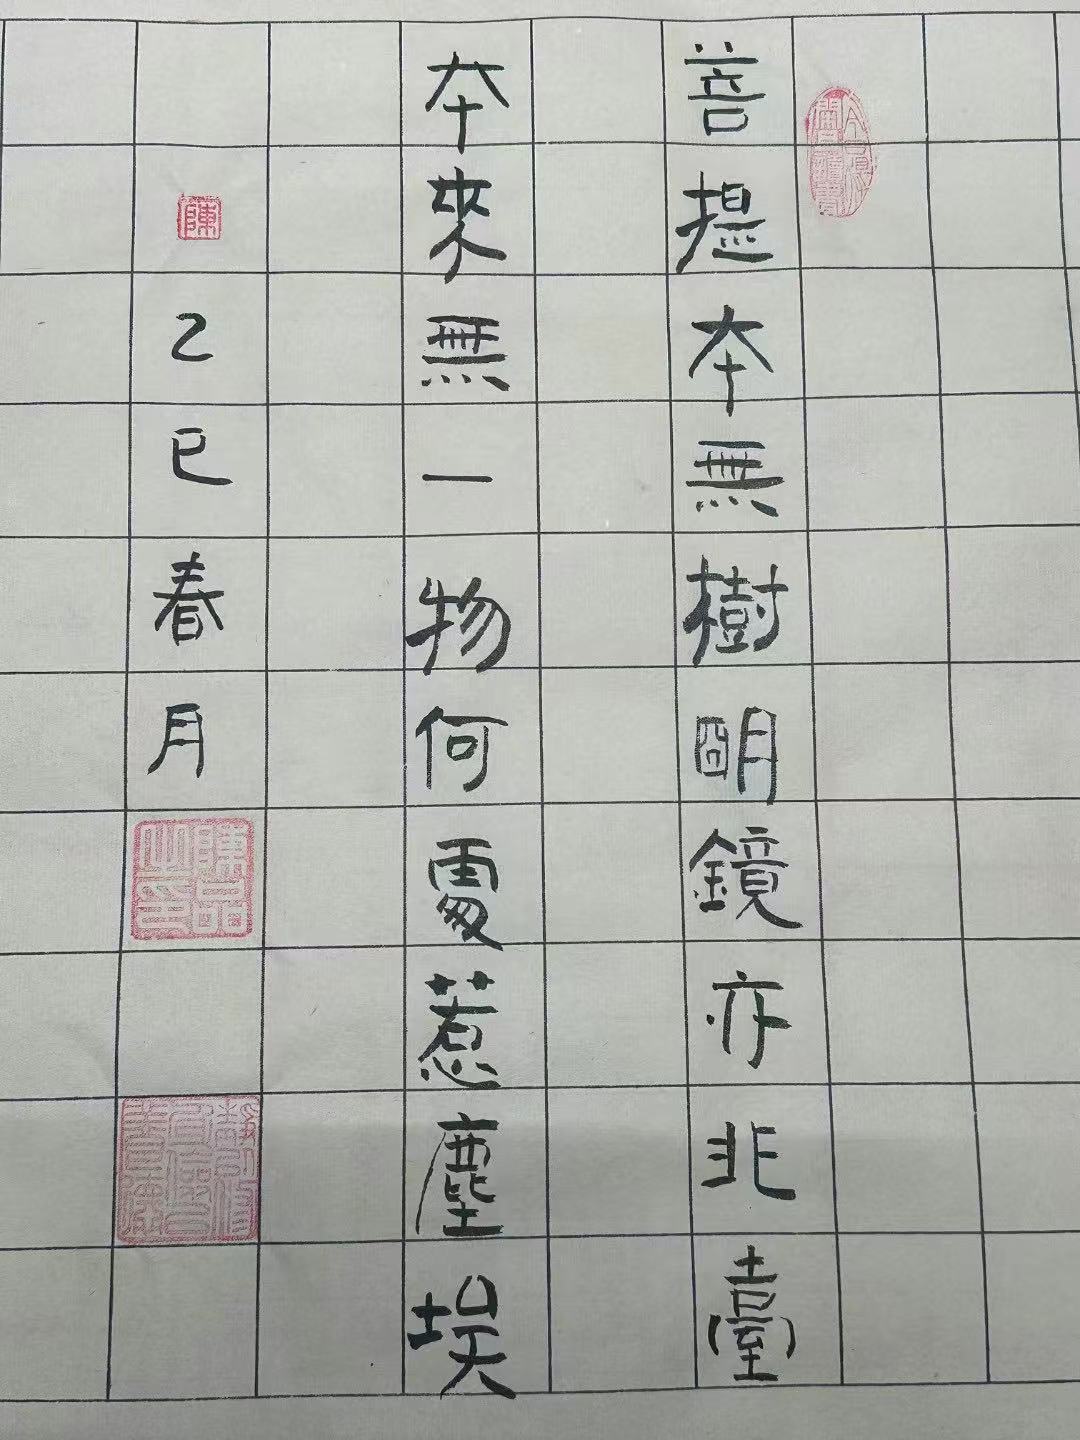 菩提夲無樹朙鏡亦非臺
夲來無一物何處惹塵埃
陳
乙巳春月